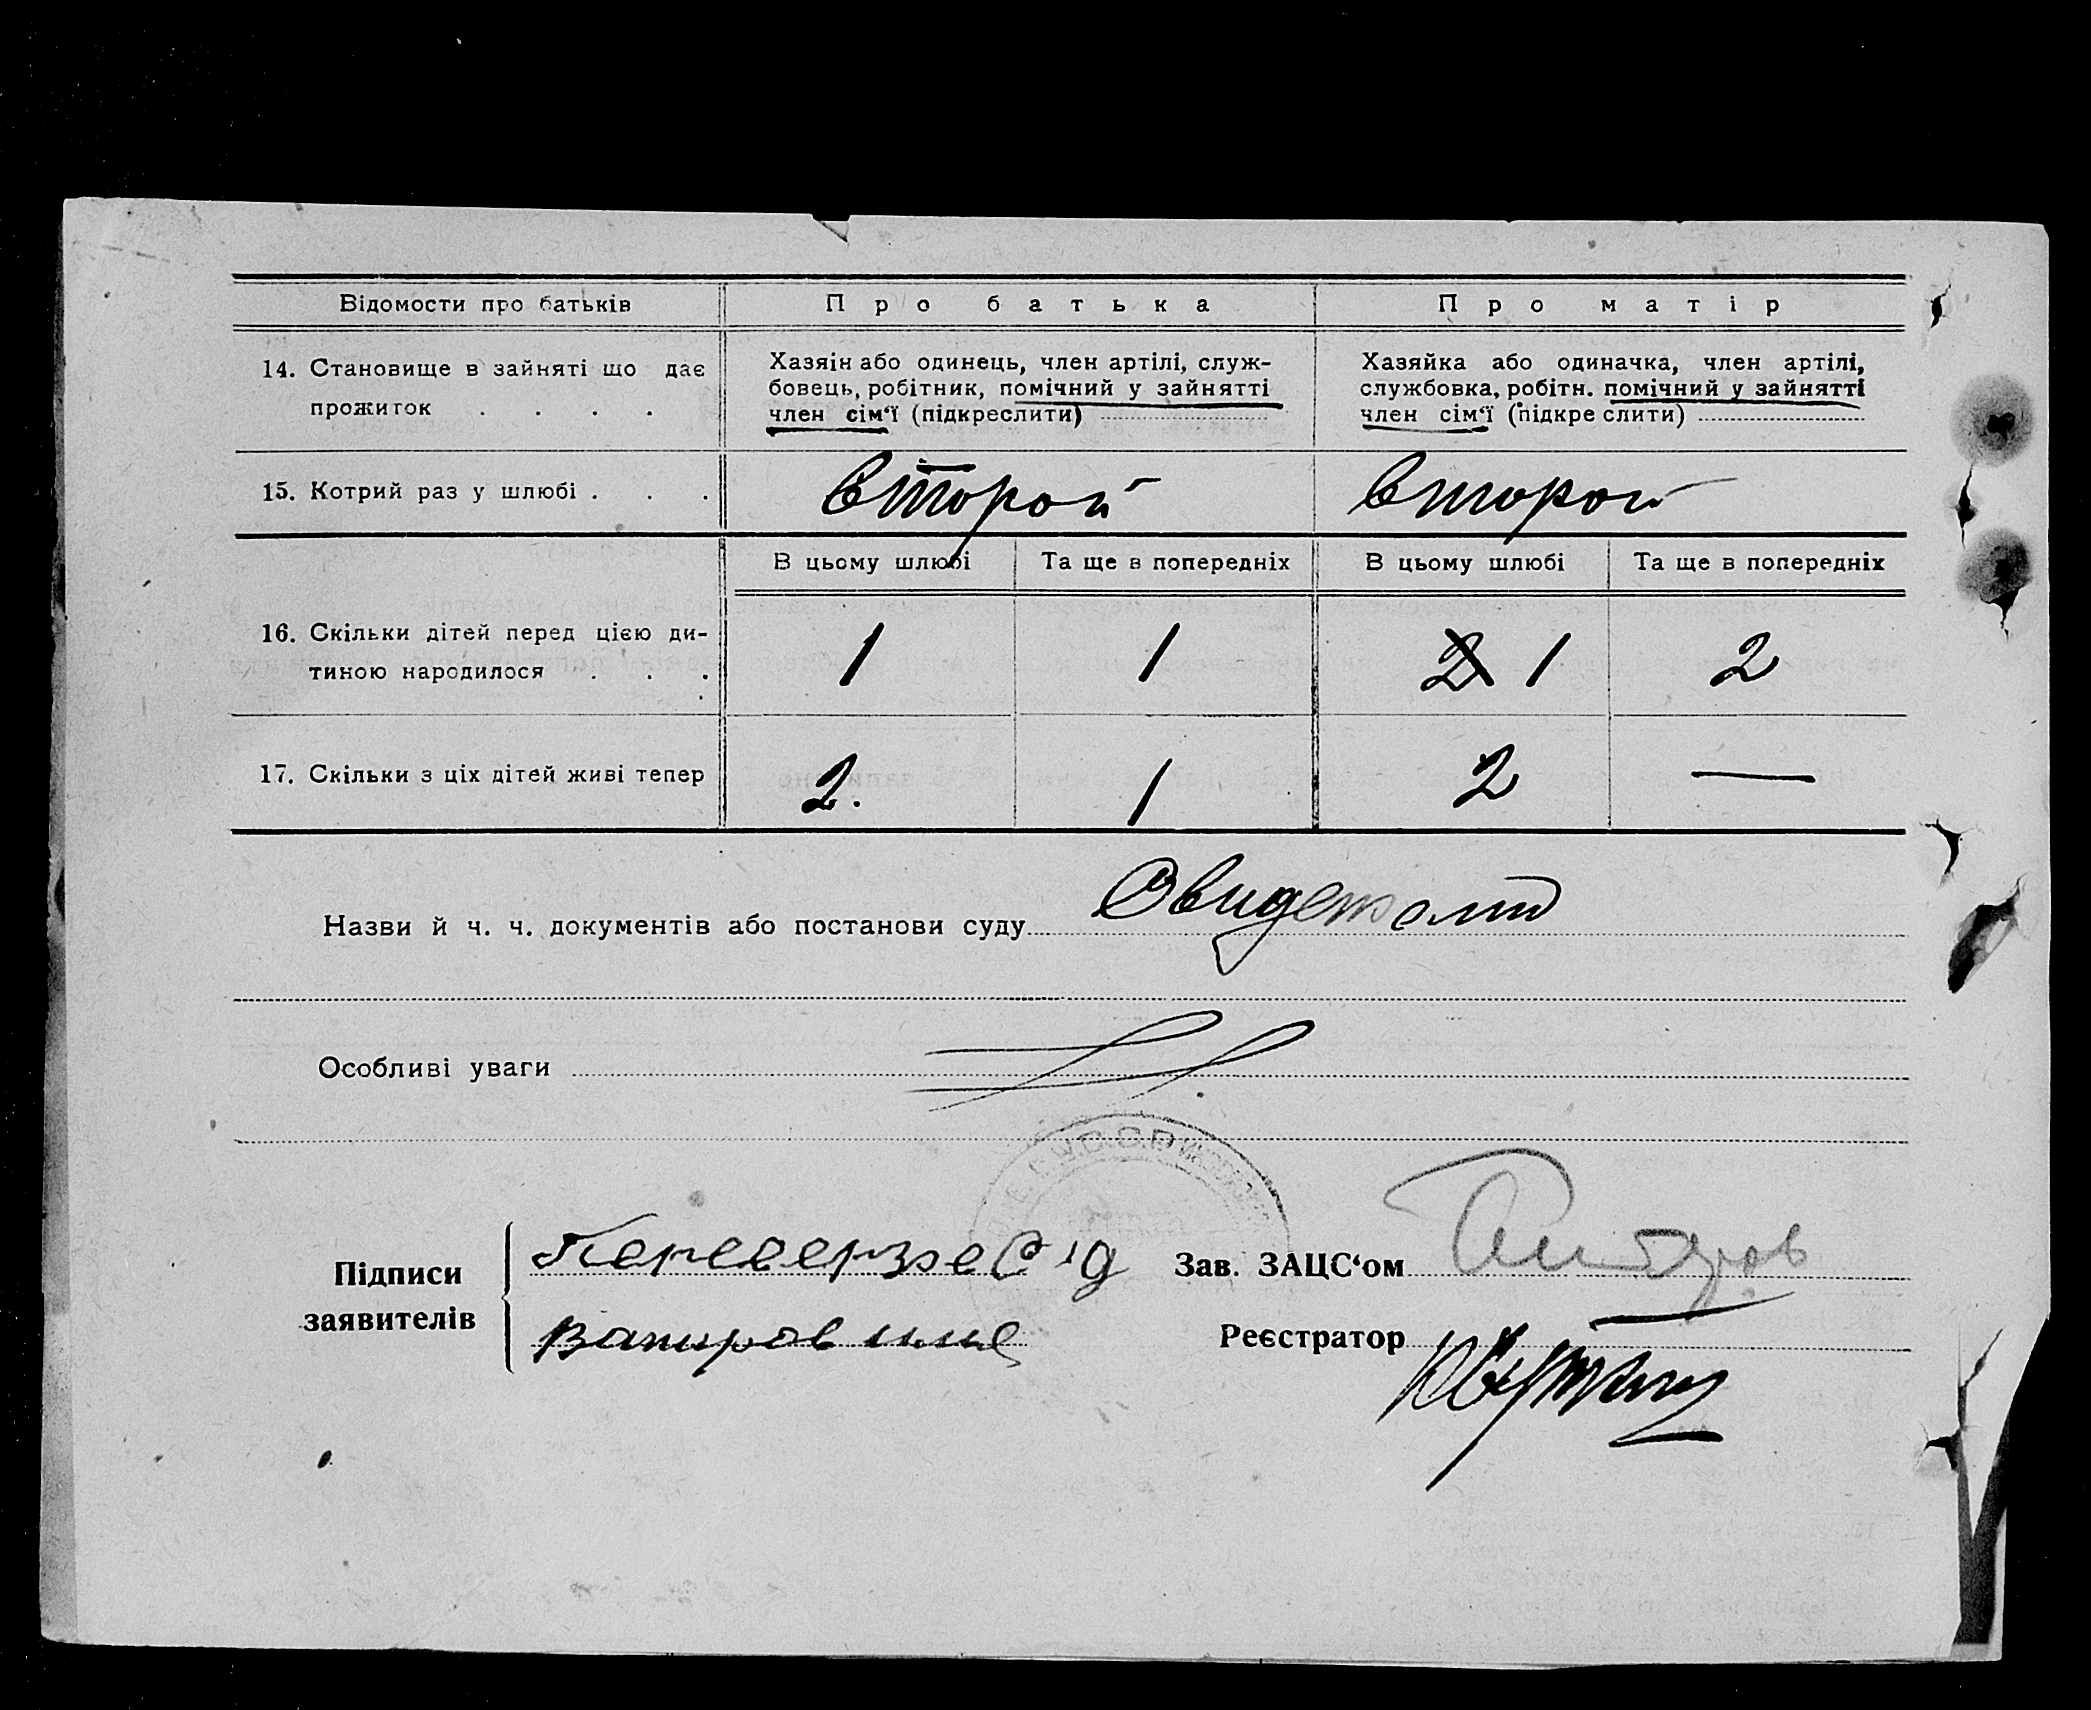 Відомости про батьків
Про батька
Про матір
14. Становище в зайняті що дає
прожиток . . . .
Хазяін або одинець, член артілі, служ-
бовець, робітник, помічний у зайнятті
член сім‘ї (підкреслити)
Хазяйка або одиначка, член артілі,
службовка, робітн. помічний у зайнятті
член сім‘ї (підкре слити)
15. Котрий раз у шлюбі . . .
второй
второй
В цьому шлюбі
Та ще в попередніх
В цьому шлюбі
Та ще в попередніх
16. Скільки дітей перед цією ди-
тиною народилося . . .
1
1
2 1
2
17. Скільки з ціх дітей живі тепер
2.
1
2
—
Назви й ч. ч. документів або постанови суду
Особливі уваги
У.С.С.Р.
Підписи
заявителів
Зав. ЗАЦС‘ом
Реєстратор